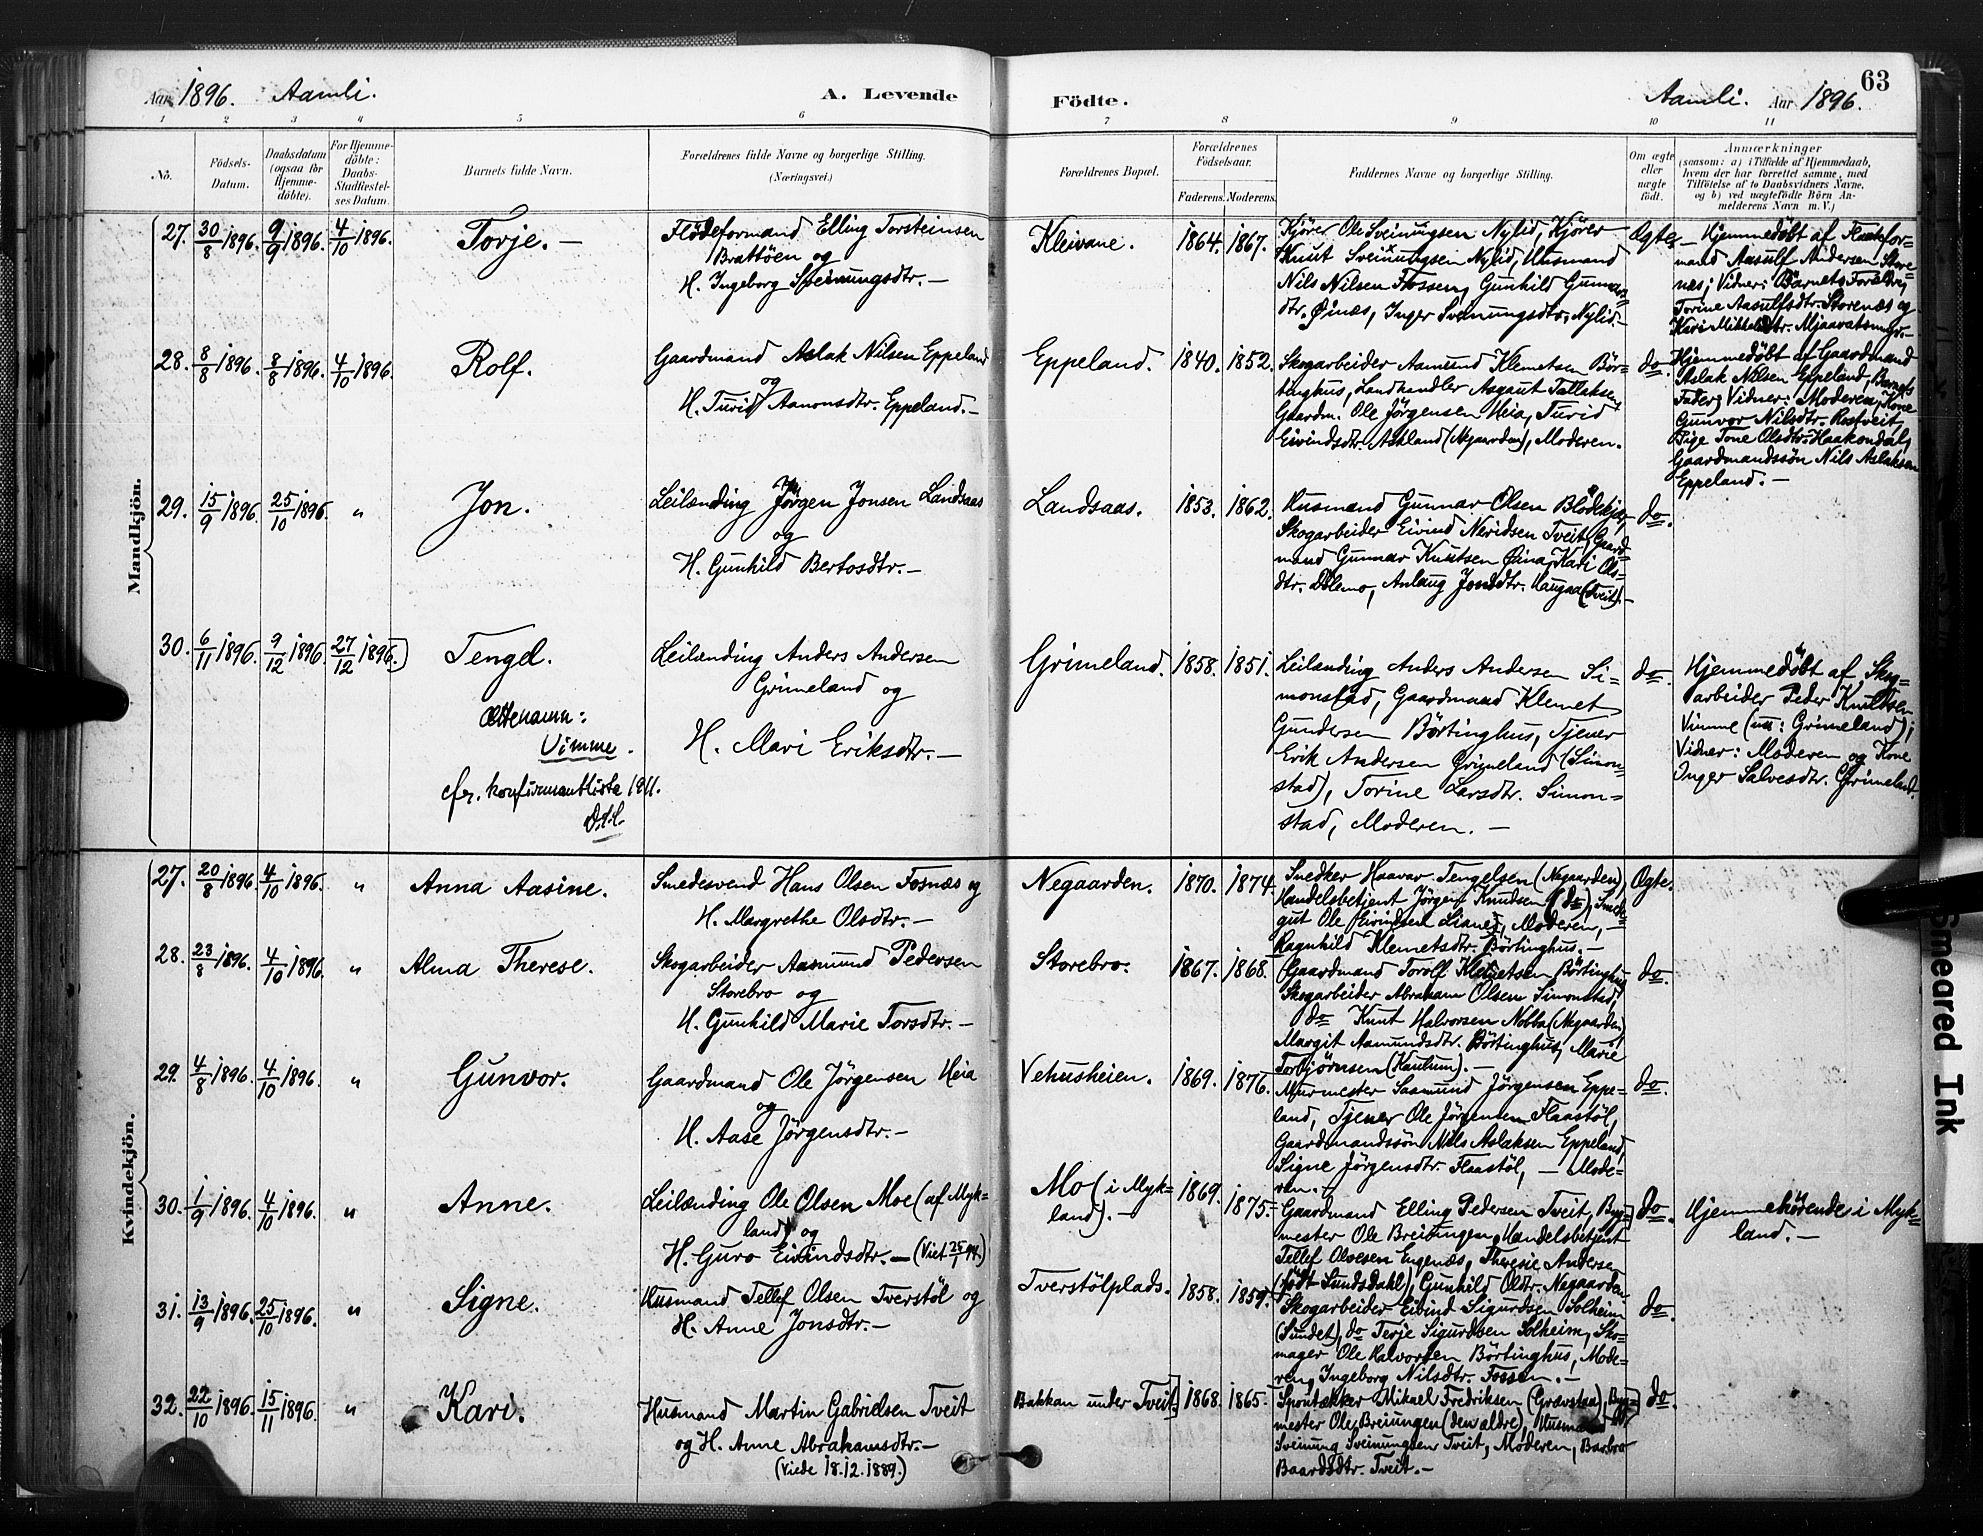 63
Aar 1896. Aamli.
A. Levende
Födte.
Aamli. Aar 1896.
1 2 3 4 5 6 7 8 9 10 11
No.
Födsels-
Datum.
Daabsdatum
(ogsaa for
Hjemme-
döbte).
For Hjemme-
döbte:
Daabs-
Stadfæstel-
ses Datum.
Barnets fulde Navn.
Forældrenes fulde Navne og borgerlige Stilling.
(Næringsvei.)
Forældrenes Bopæl.
Forældrenes
Födselsaar.
Faderens. Moderens.
Faddernes Navne og borgerlige Stilling.
Om ægte
eller
uægte
födt.
Anmærkninger
(saasom: a) i Tilfælde af Hjemmedaab,
hvem der har forrettet samme, med
Tilföielse af to Daabsvidners Navne,
og b) ved uægtefödte Börn An-
melderens Navn m. V.)
Mandkjön.
27. 30/8 1896. 9/9 1896. 4/10 1896.
Torje. —
Flödeformand Elling Torsteinsen
Brattöen og
H. Ingeborg Sveinungsdtr. —
Kleivane.
1864. 1867.
Kjörer Ole Sveinungsen Nylid, Kjörer
Knut Sveinungsen Nylid, Husmand
Nils Nilsen Fossen, Gunhild Gunnars-
dtr. Öinæs, Inger Sveinungsdtr. Nylid. —
Ægte.
— Hjemmedöbt af Flödefor-
mand Aasulf Andersen Store-
næs; Vidner: Barnets Forældre,
Torine Aasulfsdtr. Storenæs og
Kari Mikkelsdtr. Mjaavatsmyr. —
28. 8/8 1896. 8/8 1896. 4/10 1896.
Rolf.
Gaardmand Aslak Nilsen Eppeland
og
H. Turid Aanonsdtr. Eppeland. —
Eppeland.
1840. 1852.
Skogarbeider Aamund Klemetsen Bör-
tinghus, Landhandler Asgaut Tallaksen,
Gaardm. Ole Jörgensen Heia, Turid
Eivindsdtr. Askland (Negaarden), Moderen.
do.
Hjemmedöbt af Gaardmand
Aslak Nilsen Eppeland, Barnets
Fader; Vidner: Moderen, Kone
Gunvor Nilsdtr. Rosfveit,
Pige Tone Olsdtr. Haakondal,
Gaardmandssön Nils Aslaksen
Eppeland. —
29. 15/9 1896. 25/10 1896. "
Jon.
Leilænding Jörgen Jonsen Landsaas
og
H. Gunhild Bertosdtr. —
Landsaas.
1853. 1862.
Husmand Gunnar Olsen Blödekjær,
Skogarbeider Eivind Neridsen Tveit, Gaard-
mand Gunnar Knutsen Öina, Kari Ols-
dtr. Dölemo, Anlaug Jonsdtr. Haugaa (Tveit). —
do.
30. 6/11 1896. 9/12 1896. 27/12 1896.
Tengel.
Ættenavn:
Vimme.
cfr. konfirmantliste 1911.
Leilænding Anders Andersen
Grimeland og
H. Mari Eriksdtr. —
Grimeland.
1858. 1851.
Leilænding Anders Andersen Si-
monstad, Gaardmand Klemet
Gundersen Börtinghus, Tjener
Erik Andersen Grimeland (Simon-
stad), Torine Larsdtr. Simon-
stad, Moderen. —
do.
Hjemmedöbt af Skog-
arbeider Peder Knutsen
Vimme (nu: Grimeland);
Vidner: Moderen og Kone
Inger Salvesdtr. Grimeland.
Kvindekjön.
27. 20/8 1896. 4/10 1896. "
Anna Aasine.
Smedesvend Hans Olsen Fosnæs og
H. Margrethe Olsdtr. —
Negaarden.
1870. 1874.
Snedker Haavar Tengelsen (Negaarden),
Handelsbetjent Jörgen Knudsen (do), Smaa-
gut Ole Eivindsen Lianes, Moderen,
Ragnhild Klemetsdtr. Börtinghus. —
Ægte.
28. 23/8 1896. 4/10 1896. "
Alma Therese.
Skogarbeider Aasmund Pedersen
Storebro og
H. Gunhild Marie Torsdtr. —
Storebro.
1867. 1868.
Gaardmand Torolf Klemetsen Börtinghus,
Skogarbeider Abraham Olsen Simonstad,
do Knut Halvorsen Nobba (Negaarden),
Margit Aamundsdtr. Börtinghus, Marie
Torbjörnsen (Haubum). —
do.
29. 4/8 1896. 4/10 1896. "
Gunvor.
Gaardmand Ole Jörgensen Heia
og
H. Aase Jörgensdtr. —
Vehusheien.
1869. 1876.
Murmester Aasmund Jörgensen Eppe-
land, Tjener Ole Jörgensen Flaastöl,
Gaardmandssön Nils Aslaksen Eppeland,
Signe Jörgensdtr. Flaastöl, — Mode-
ren. —
do.
30. 1/9 1896. 4/10 1896. "
Anne.
Leilænding Ole Olsen Moe (af Myk-
land) og
H. Guro Eivindsdtr. — (Viet 25/7 94.)
Mo (i Myk-
land). —
1869. 1875.
Gaardmand Elling Pedersen Tveit, Byg-
mester Ole Breiungen, Handelsbetjent
Tellef Olvesen Engenæs, Theresie Andersen
(födt Sundsdahl), Gunhild Oldtr. Negaarden.
do.
Hjemmehörende i Myk-
land. —
31. 13/9 1896. 25/10 1896. "
Signe.
Husmand Tellef Olsen Tverstöl og
H. Anne Jonsdtr. —
Tverstölplads.
1858. 1859.
Skogarbeider Eivind Sigurdsen Solheim
(Sundet), do Terje Sigurdsen Solheim, Sko-
mager Ole Halvorsen Börtinghus, Mode-
ren, Ingeborg Nilsdtr. Fossen. —
do.
32. 22/10 1896. 15/11 1896. "
Kari.
Husmand Martin Gabrielsen Tveit
og H. Anne Abrahamsdtr. —
(Viede 18.12.1889.)
Bakkan under Tveit.
1868. 1865.
Spontækker Mikael Fredriksen (Gravstaa), Byg-
mester Ole Breiungen (den ældre), Husmand
Sveinung Sveinungsen Tveit, Moderen, Barbro
Baardsdtr. Tveit. —
do.
Smeared Ink